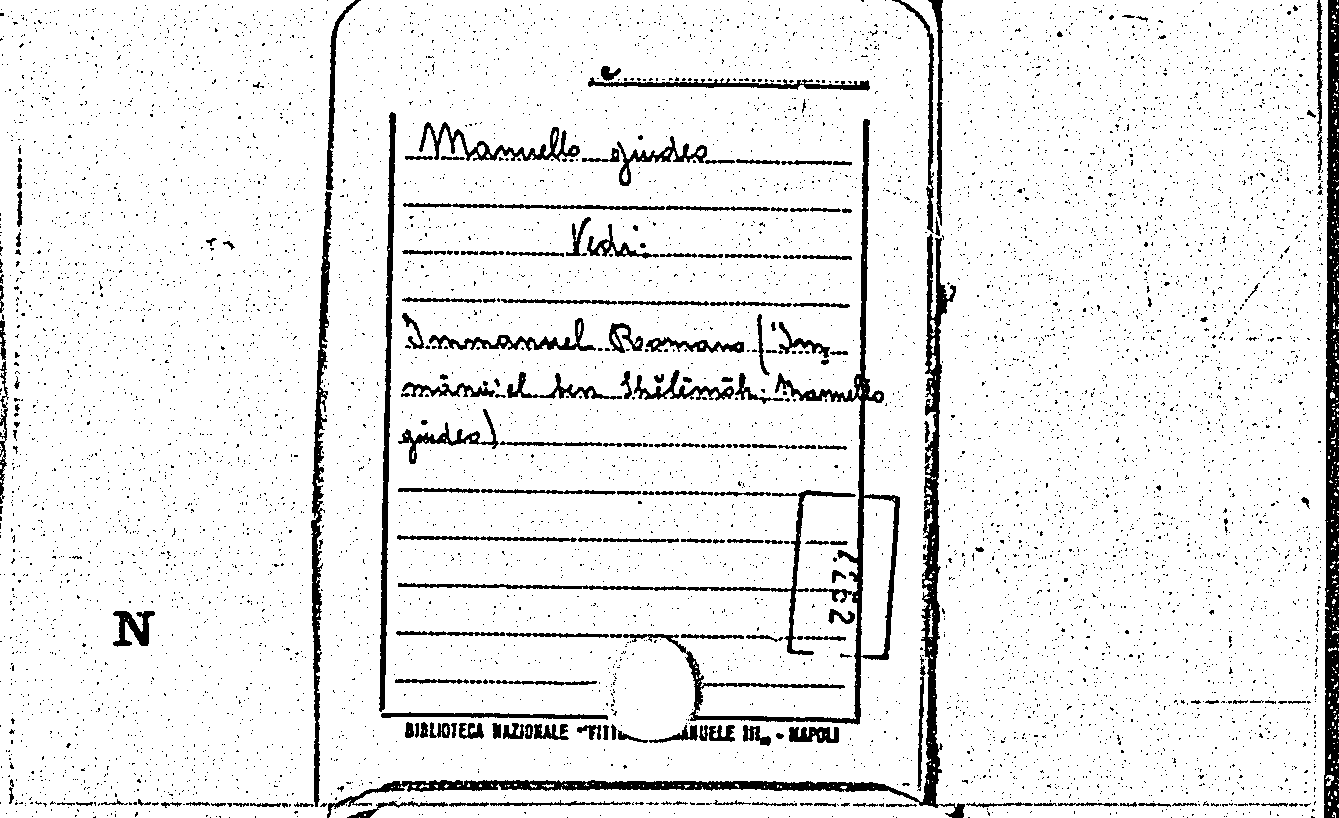 Manuello giudeo
Vedi:
Immanuel Romano ('Im
mānū'el ben Shĕlōmōh; Manuello
giudeo)
N
BIBLIOTECA NAZIONALE - NAPOLI